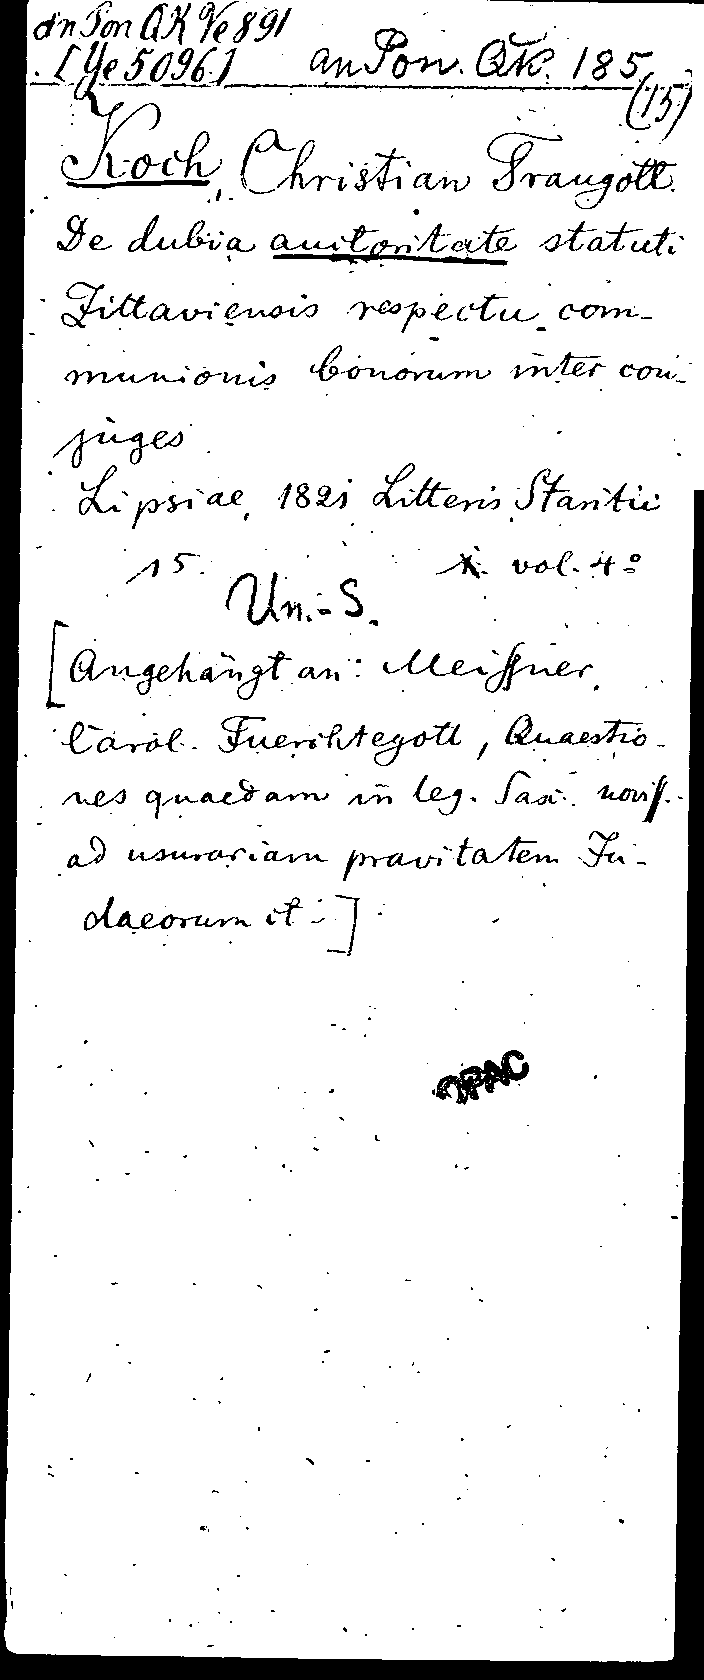 an Pon QK Ve 891
[Ye 5096.] an Pon. QK. 185
(15)
Koch, Christian Traugott.
De dubia auctoritate statuti
Zittaviensis respectu com-
munionis bonorum inter con-
juges
Lipsiae, 1821 Litteris Staritii
15. 4º
Un.-S.
[Angehängt an: Meißner,
Carol. Fuerchtegott, Quaestio-
nes quaedam in leg. Sax. noviss.
ad usurariam pravitatem Ju-
daeorum et-]
OPAC